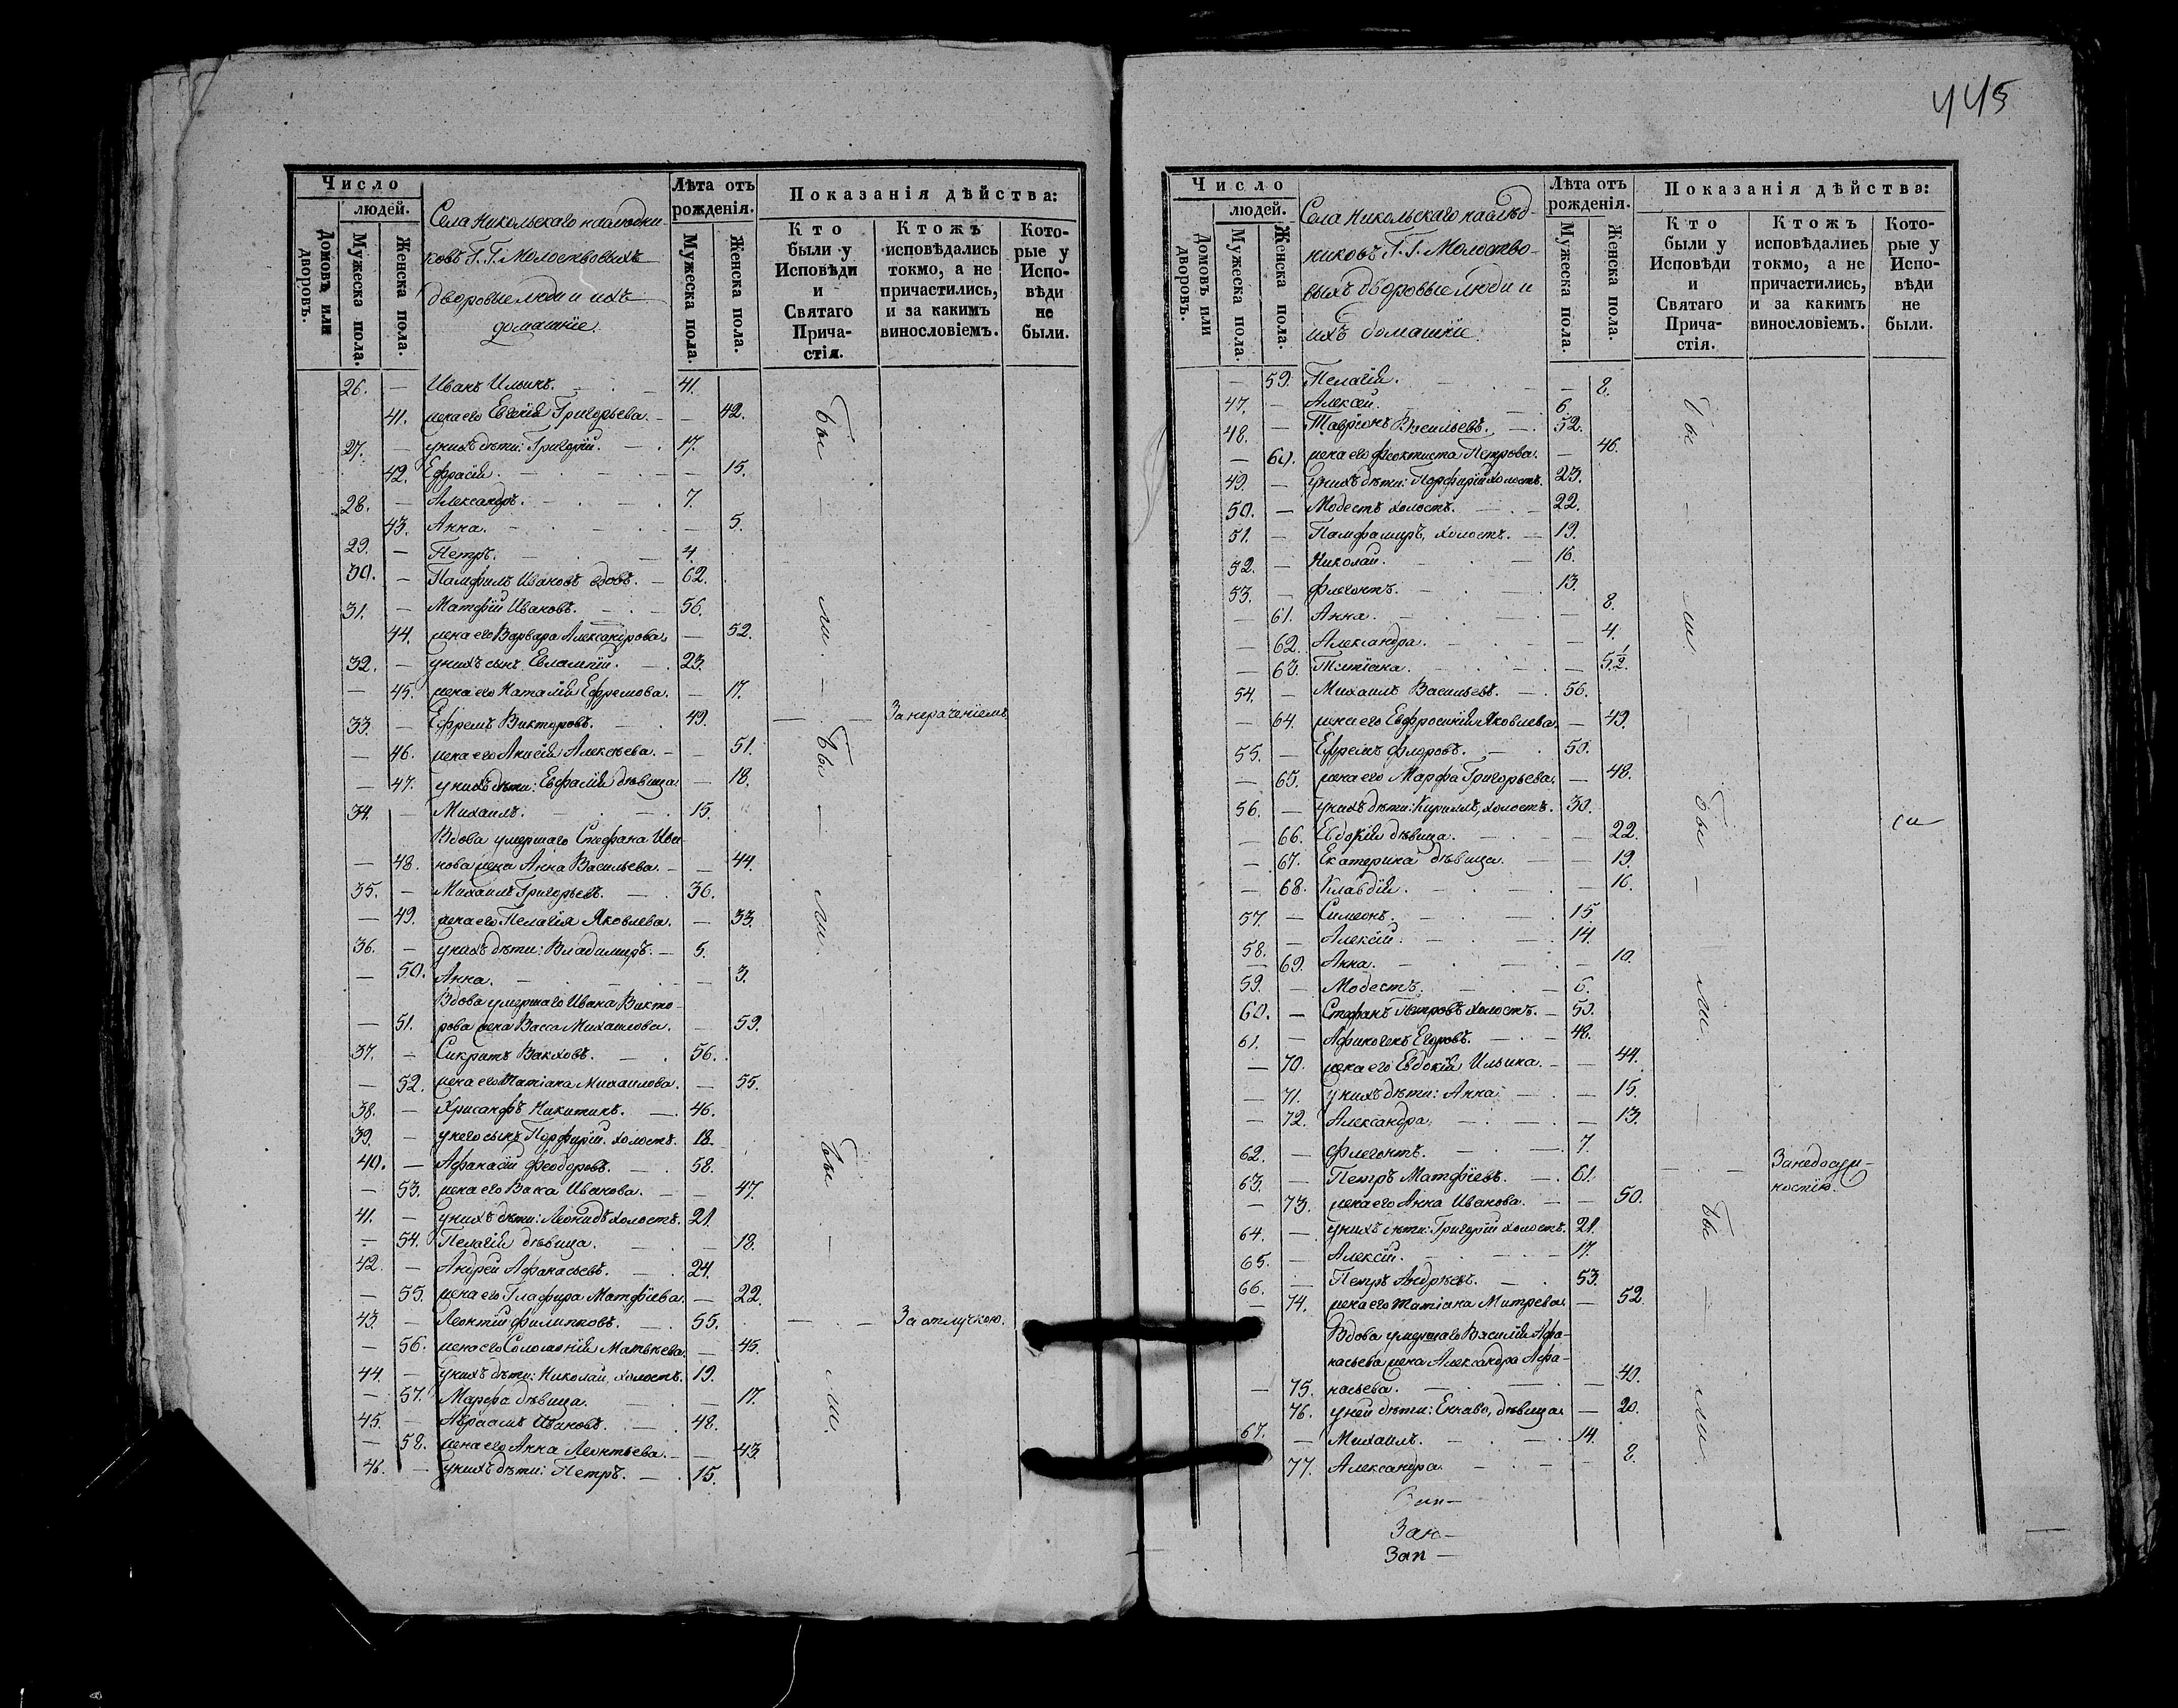 445
Число
людей.
Домовъ или дворовъ.
Мужеска пола.
Женска пола.
Села Никольскаго наслѣдни-
ковъ Г. Г. Молоствовыхъ
дворовые люди и ихъ
домашніе.
Лѣта отъ рожденія.
Мужеска пола.
Женска пола.
Показанія дѣйства:
Кто были у Исповѣди и Святаго Прича-стія.
Ктожъ исповѣдались токмо, а не причастились, и за какимъ винословіемъ.
Кото-рые у Испо-вѣди не были.
26. — Иванъ Ильинъ. — 41.
41. жена его Евгенія Григорьева. — 42.
27. — у нихъ дѣти: Григорій. — 17.
42. Ефрасія. — 15.
28. — Александръ. — 7.
43. Анна. — 5.
29. — Петръ. — 4.
30. — Памфилъ Ивановъ вдовъ. — 62.
31. — Матфій Ивановъ. — 56.
44. жена его Варвара Александрова. — 52.
32. — у нихъ сынъ Евлампій. — 23.
— 45. жена его Наталія Ефремова. — 17.
33. — Ефремъ Викторовъ. — 49. — — За нераченіемъ
— 46. жена его Анисія Алексѣева. — 51.
— 47. у нихъ дѣти: Евфалія дѣвица. — 18.
34. — Михаилъ. — 15.
Вдова умершаго Стефана Ива-
— 48. нова жена Анна Васильева. — 44.
35. — Михаилъ Григорьевъ. — 36.
— 49. жена его Пелагія Яковлева. — 33.
36. — у нихъ дѣти: Владимиръ. — 5.
— 50. Анна. — 3.
Вдова умершаго Ивана Викто-
— 51. рова жена Васса Михаилова. — 59.
37. — Сикратъ Вакховъ. — 56.
— 52. жена его Татіана Михаилова. — 55.
38. — Хрисанфъ Никитинъ. — 46.
39. — у него сынъ Порфирій. холостъ. 18.
40. — Афанасій Феодоровъ. — 58.
— 53. жена его Васса Иванова. — 47.
41. — у нихъ дѣти: Леонидъ холостъ. 21.
— 54. Пелагія дѣвица. — 18.
42. — Андрей Афанасьевъ. — 24.
— 55. жена его Глафира Матфіева. — 22.
43. — Леонтій Филипповъ. — 55. — — За отлучкою.
— 56. жена его Соломонія Матвѣева. — 45.
44. — у нихъ дѣти: Николай, холостъ. 19.
— 57. Марфа дѣвица. — 17.
45. — Авраамъ Ивановъ. — 48.
— 58. жена его Анна Леонтьева. — 43.
46. — у нихъ дѣти: Петръ. — 15.
Бы — ли. — Бы — ли. — Бы — ли.
Число
людей.
Домовъ или дворовъ.
Мужеска пола.
Женска пола.
Села Никольскаго наслѣд-
никовъ Г. Г. Молоство-
выхъ дворовые люди и
ихъ домашніе.
Лѣта отъ рожденія.
Мужеска пола.
Женска пола.
Показанія дѣйства:
Кто были у Исповѣди и Святаго Прича-стія.
Ктожъ исповѣдались токмо, а не причастились, и за какимъ винословіемъ.
Кото-рые у Испо-вѣди не были.
— 59. Пелагія. — 8.
47. — Алексѣй. — 6.
48. — Тавріонъ Васильевъ. — 52.
— 60. жена его Феоктиста Петрова. — 46.
49. — у нихъ дѣти: Порфирій холостъ. 23.
50. — Модестъ холостъ. — 22.
51. — Памфамиръ, холостъ. — 19.
52. — Николай. — 16.
53. — Флегонтъ. — 13.
— 61. Анна. — 8.
— 62. Александра. — 4.
— 63. Татіана. — 5 1/2.
54. — Михаилъ Васильевъ. — 56.
— 64. жена его Евфросинія Яковлева. — 49.
55. — Ефремъ Флоровъ. — 50.
— 65. жена его Марфа Григорьева. — 48.
56. — у нихъ дѣти: Кириллъ, холостъ. 30.
— 66. Евдокія дѣвица. — 22.
— 67. Екатерина дѣвица. — 19.
— 68. Клавдія. — 16.
57. — Симеонъ. — 15.
58. — Алексій. — 14.
— 69. Анна. — 10.
59. — Модестъ. — 6.
60. — Стефанъ Петровъ холостъ. — 50.
61. — Афиногенъ Егоровъ. — 48.
— 70. жена его Евдокія Ильина. — 44.
— 71. у нихъ дѣти: Анна — 15.
— 72. Александра. — 13.
62. — Флегонтъ. — 7.
63. — Петръ Матфіевъ. — 61. — — За недосуж-
ностію.
— 73. жена его Анна Иванова. — 50.
64. — у нихъ дѣти: Григорій холостъ. 21.
65. — Алексій. — 17.
66. — Петръ Андреевъ. — 53.
— 74. жена его Татіана Митрева. — 52.
Вдова умершаго Василія Афа-
насьева жена Александра Афа-
— 75. насьева. — 40.
76. у ней дѣти: Еннаво, дѣвица. — 20.
67. — Михаилъ. — 14.
77. Александра. — 8.
Бы — ли. — Бы — ли. — Бы — ли.
Зан —
Зап —